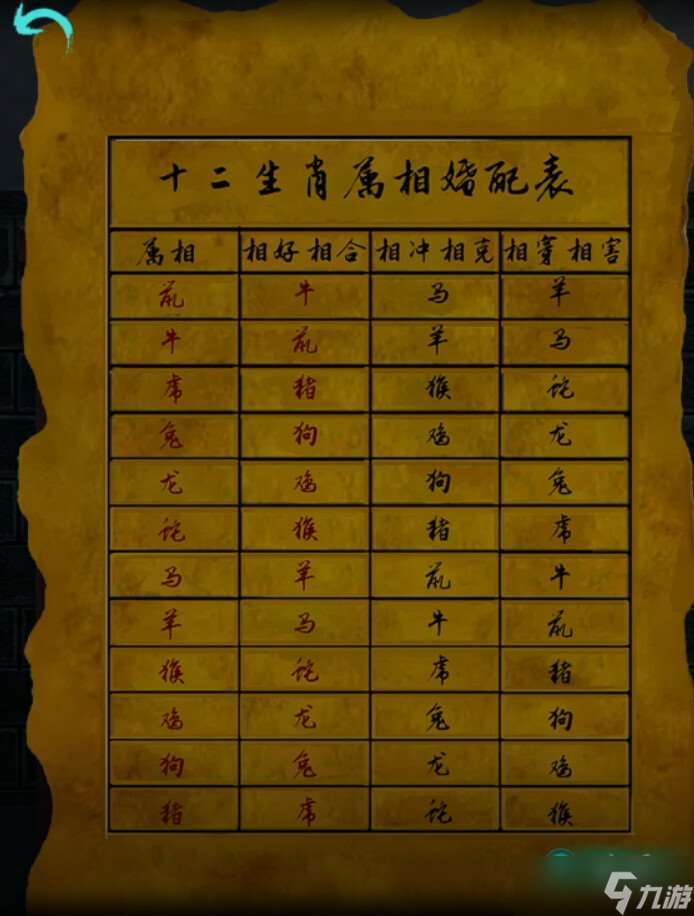 十二生肖属相婚配表
属相 相好相合 相冲相克 相穿相害
鼠 牛 马 羊
牛 鼠 羊 马
虎 猪 猴 蛇
兔 狗 鸡 龙
龙 鸡 狗 兔
蛇 猴 猪 虎
马 羊 鼠 牛
羊 马 牛 鼠
猴 蛇 虎 猪
鸡 龙 兔 狗
狗 兔 龙 鸡
猪 虎 蛇 猴
九游